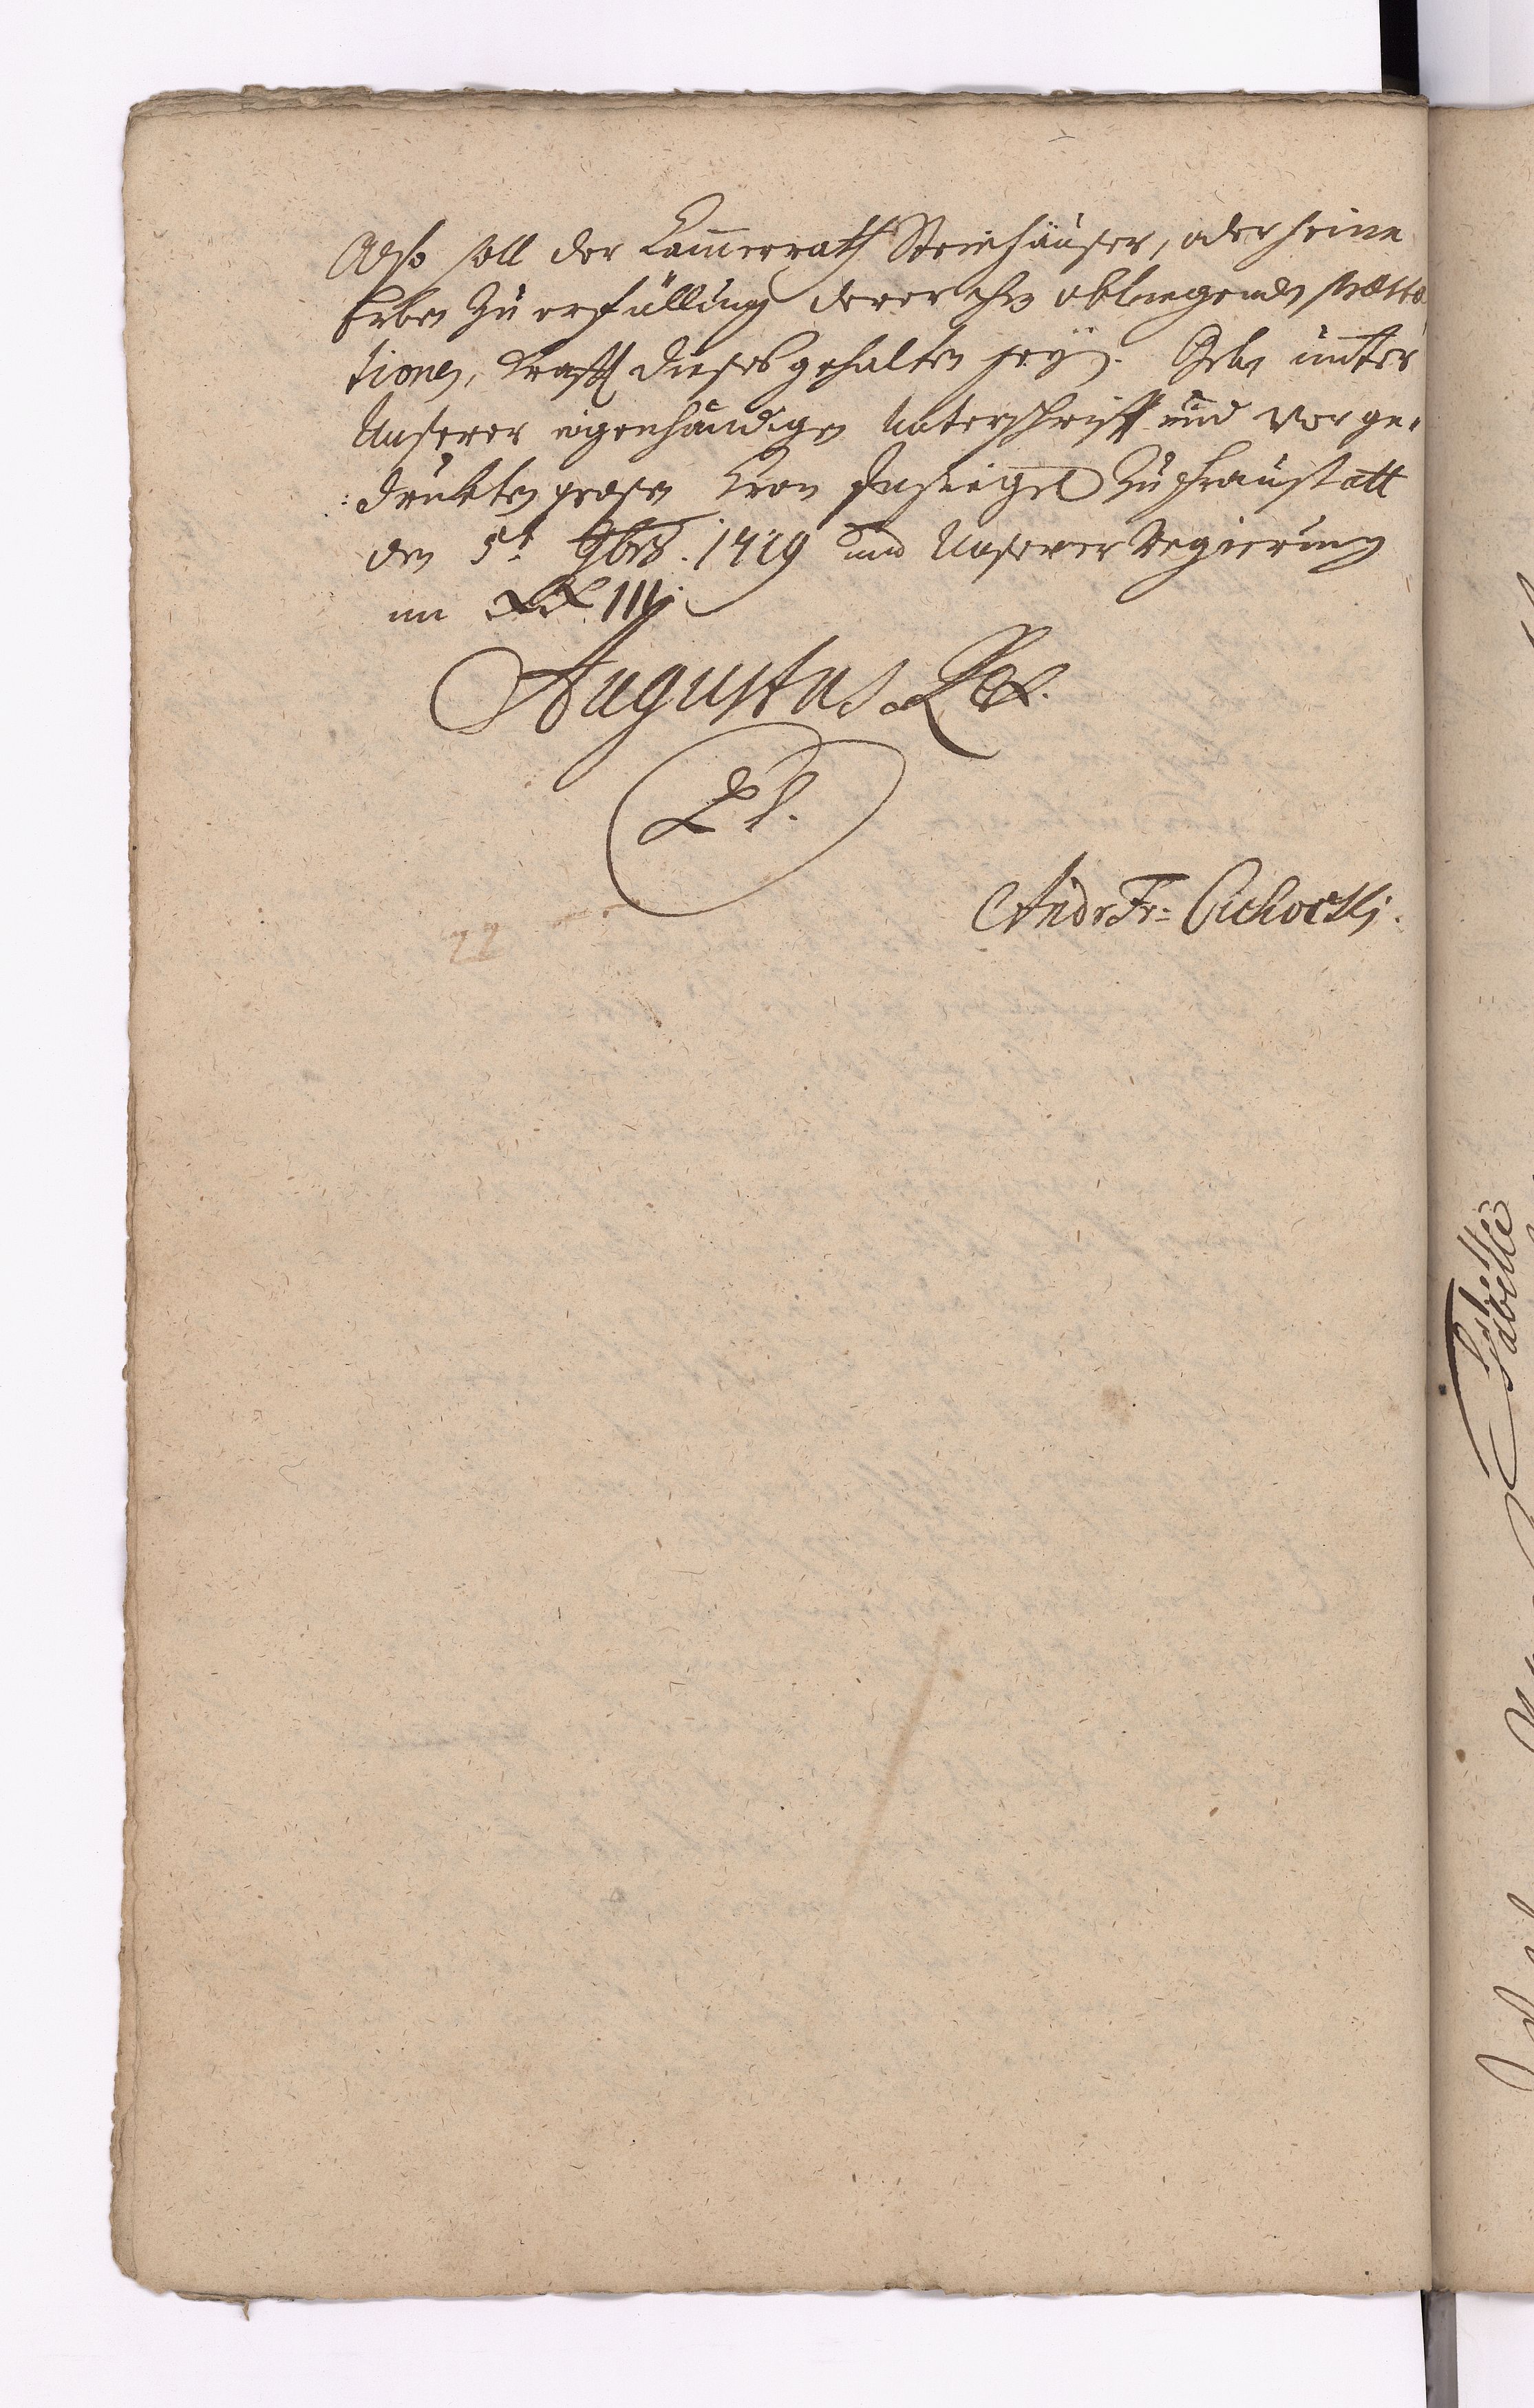 Also soll der Cammerrath Steinhäuser, oder seine
Erben zu erfüllung derer ihm obliegenden præsta
tionen, Krafft dieses gehalten seyn. Geben unter
Unserer eigenhändigen Unterschrifft und vorge-
:drukten grosen Cron Insiegel zu Fraustatt
den 5t. 9brs. 1719 und Unserer Regierung
im XXIII.
Augustus Rex.
LS.
Andr Fr: Cichocki.